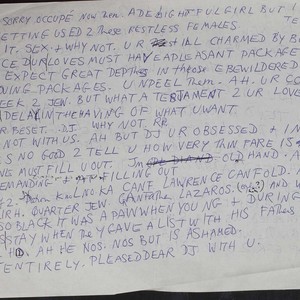 SORRY OCCUPÉ NOW THEN. A DELIGHTFUL GIRL BUT I
GETTING USED 2 THESE RESTLESS FEMALES.
IT. SEX + WHY NOT. U R STILL CHARMED BY B
CE OUR LOVES MUST HAVE A PLEASANT PACKAGE
EXPECT GREAT DEPTHS IN THESE BEWILDERED
ING PACKAGES. U NPEEL THEM. AH. UR GO
EEK 2 JEN. BUT WHAT A TESTAMENT 2 UR LOVE
DELAY IN THE HAVING OF WHAT U WANT
R BESET. DJ WHY NOT RR
NOT WITH US. AH BUT DJ UR OBSESSED + IN
S NO GOOD 2 TELL U HOW VERY THIN FARE IS
NS MUST FILL U OUT. I'M OLD HAND. A
EMANDING + FILLING OUT
#2. KNO KA CANT LAWRENCE CAN FOLD.
IRH. QUARTER JEW GRANFATHER LAZAROS.
SO BLACK IT WAS A PAWN WHEN YOUNG + DURING
STAY WHEN THEY GAVE A LIST WITH HIS FATHERS
H. AH HE NOS. NOS BUT IS ASHAMED.
ENTIRELY. PLEASED DEAR DJ WITH U.